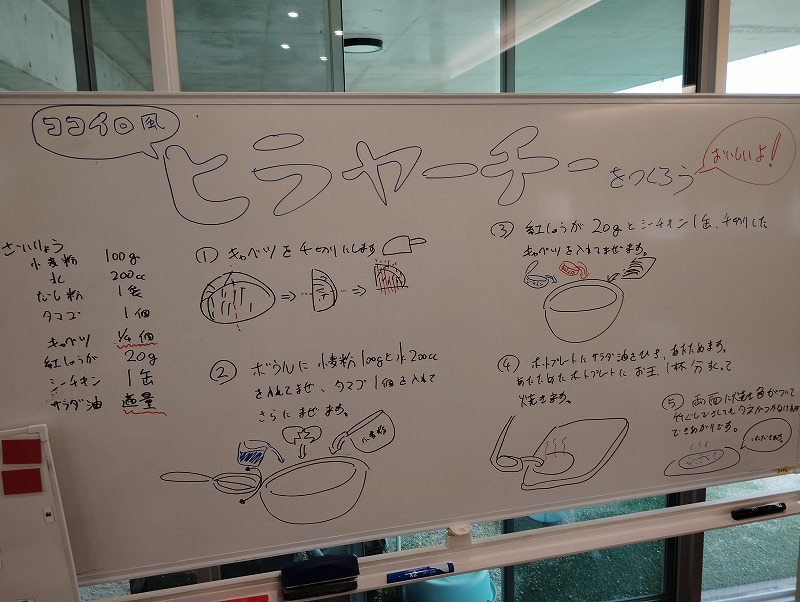 ココイロ風
ヒラヤーチーをつくろう
おいしいよ!
ざいりょう
小麦粉 100g
水 200cc
だし粉 1袋
タマゴ 1個
キャベツ 1/4個
紅しょうが 20g
シーチキン 1缶
サラダ油 適量
① キャベツを千切りにします
② ボウルに小麦粉100gと水200cc
を入れてまぜ、タマゴ1個を入れて
さらにまぜます。
小麦粉
③ 紅しょうが20gとシーチキン1缶、千切りした
キャベツを入れてまぜます。
④ ホットプレートにサラダ油をひき、あたためます。
あたためたホットプレートにお玉1杯分入って
焼きます。
⑤ 両面に焼き色がついて
竹ぐしでさしてもタネがつかなければ
できあがりです。